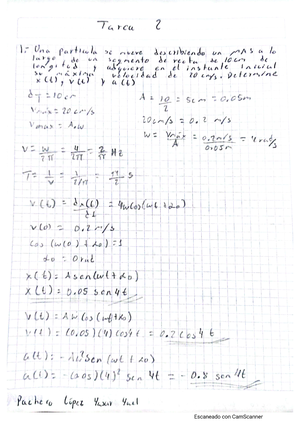 Tarea 2
1.- Una particula se mueve describiendo un MAS a lo
largo de un segmento de recta de 10cm de
longitud y adquiere en el instante inicial
su máxima velocidad de 20 cm/s. Determine
x(t), v(t) y a(t)
dT = 10 cm
A = 10/2 = 5cm = 0.05m
Vmax = 20 cm/s
20cm/s = 0.2 m/s
Vmax = Aw
w = Vmax/A = 0.2m/s / 0.05m = 4 rad/s
v = w/2π = 4/2π = 2/π Hz
T = 1/v = 1/2/π = π/2 s
v(t) = dx(t)/dt = Awcos(wt + α0)
v(0) = 0.2 m/s
cos(w(0) + α0) = 1
α0 = 0 rad
x(t) = A sen(wt + α0)
x(t) = 0.05 sen 4t
v(t) = Aw cos(wt + α0)
v(t) = (0.05)(4) cos4t = 0.2 cos 4t
a(t) = -Aw² sen(wt + α0)
a(t) = -(.05)(4)² sen 4t = -0.8 sen 4t
Pacheco López
Escaneado con CamScanner